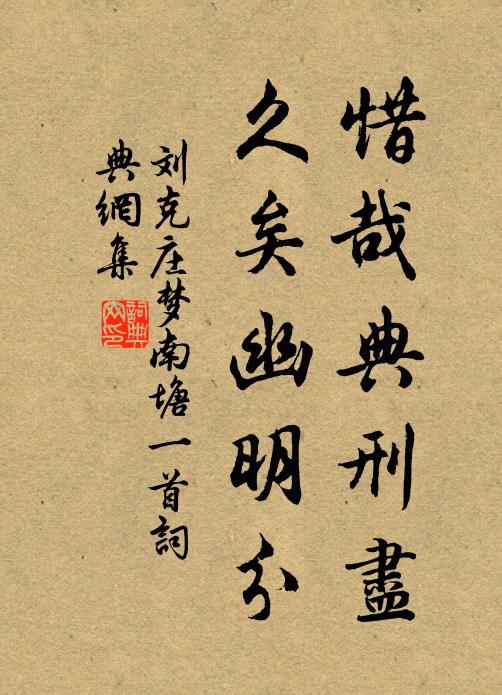 惜哉典刑盡
久矣幽明分
刘克庄梦南塘一首詞
典網集
詞典
网印